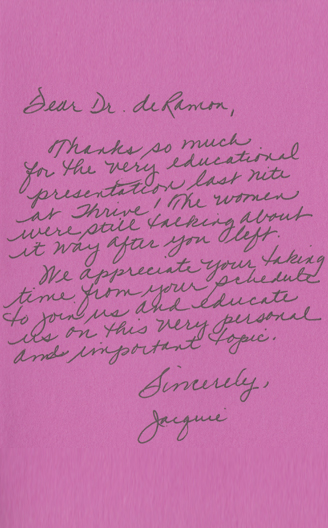 Dear Dr. deRamon,
Thanks so much
for the very educational
presentation last nite
at Thrive! The women
were still talking about
it way after you left.
We appreciate your taking
time from your schedule
to join us and educate
us on this very personal
and important topic.
Sincerely,
Jacquie